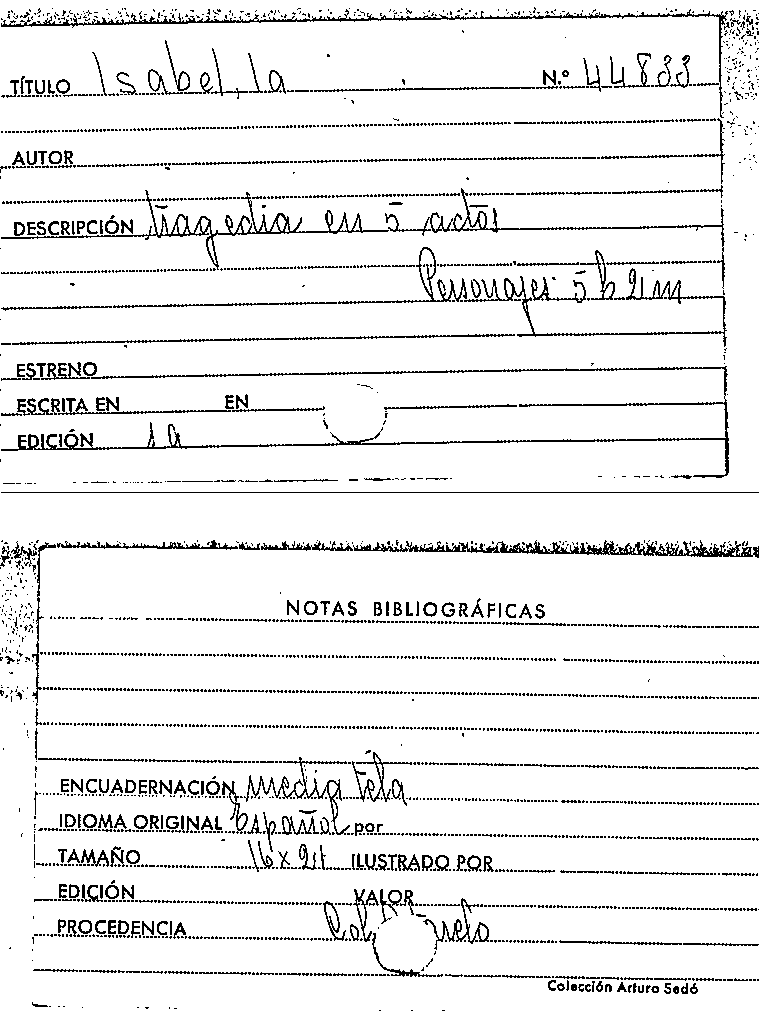 TÍTULO Isabel, la N.º 44833
AUTOR
DESCRIPCIÓN tragedia en 5 actos
Personajes: 5 h 2 m
ESTRENO
ESCRITA EN EN
EDICIÓN 1a
NOTAS BIBLIOGRÁFICAS
ENCUADERNACIÓN media tela
IDIOMA ORIGINAL Español por
TAMAÑO 16 x 21 ILUSTRADO POR
EDICIÓN VALOR
PROCEDENCIA Col.
Colección Arturo Sedó